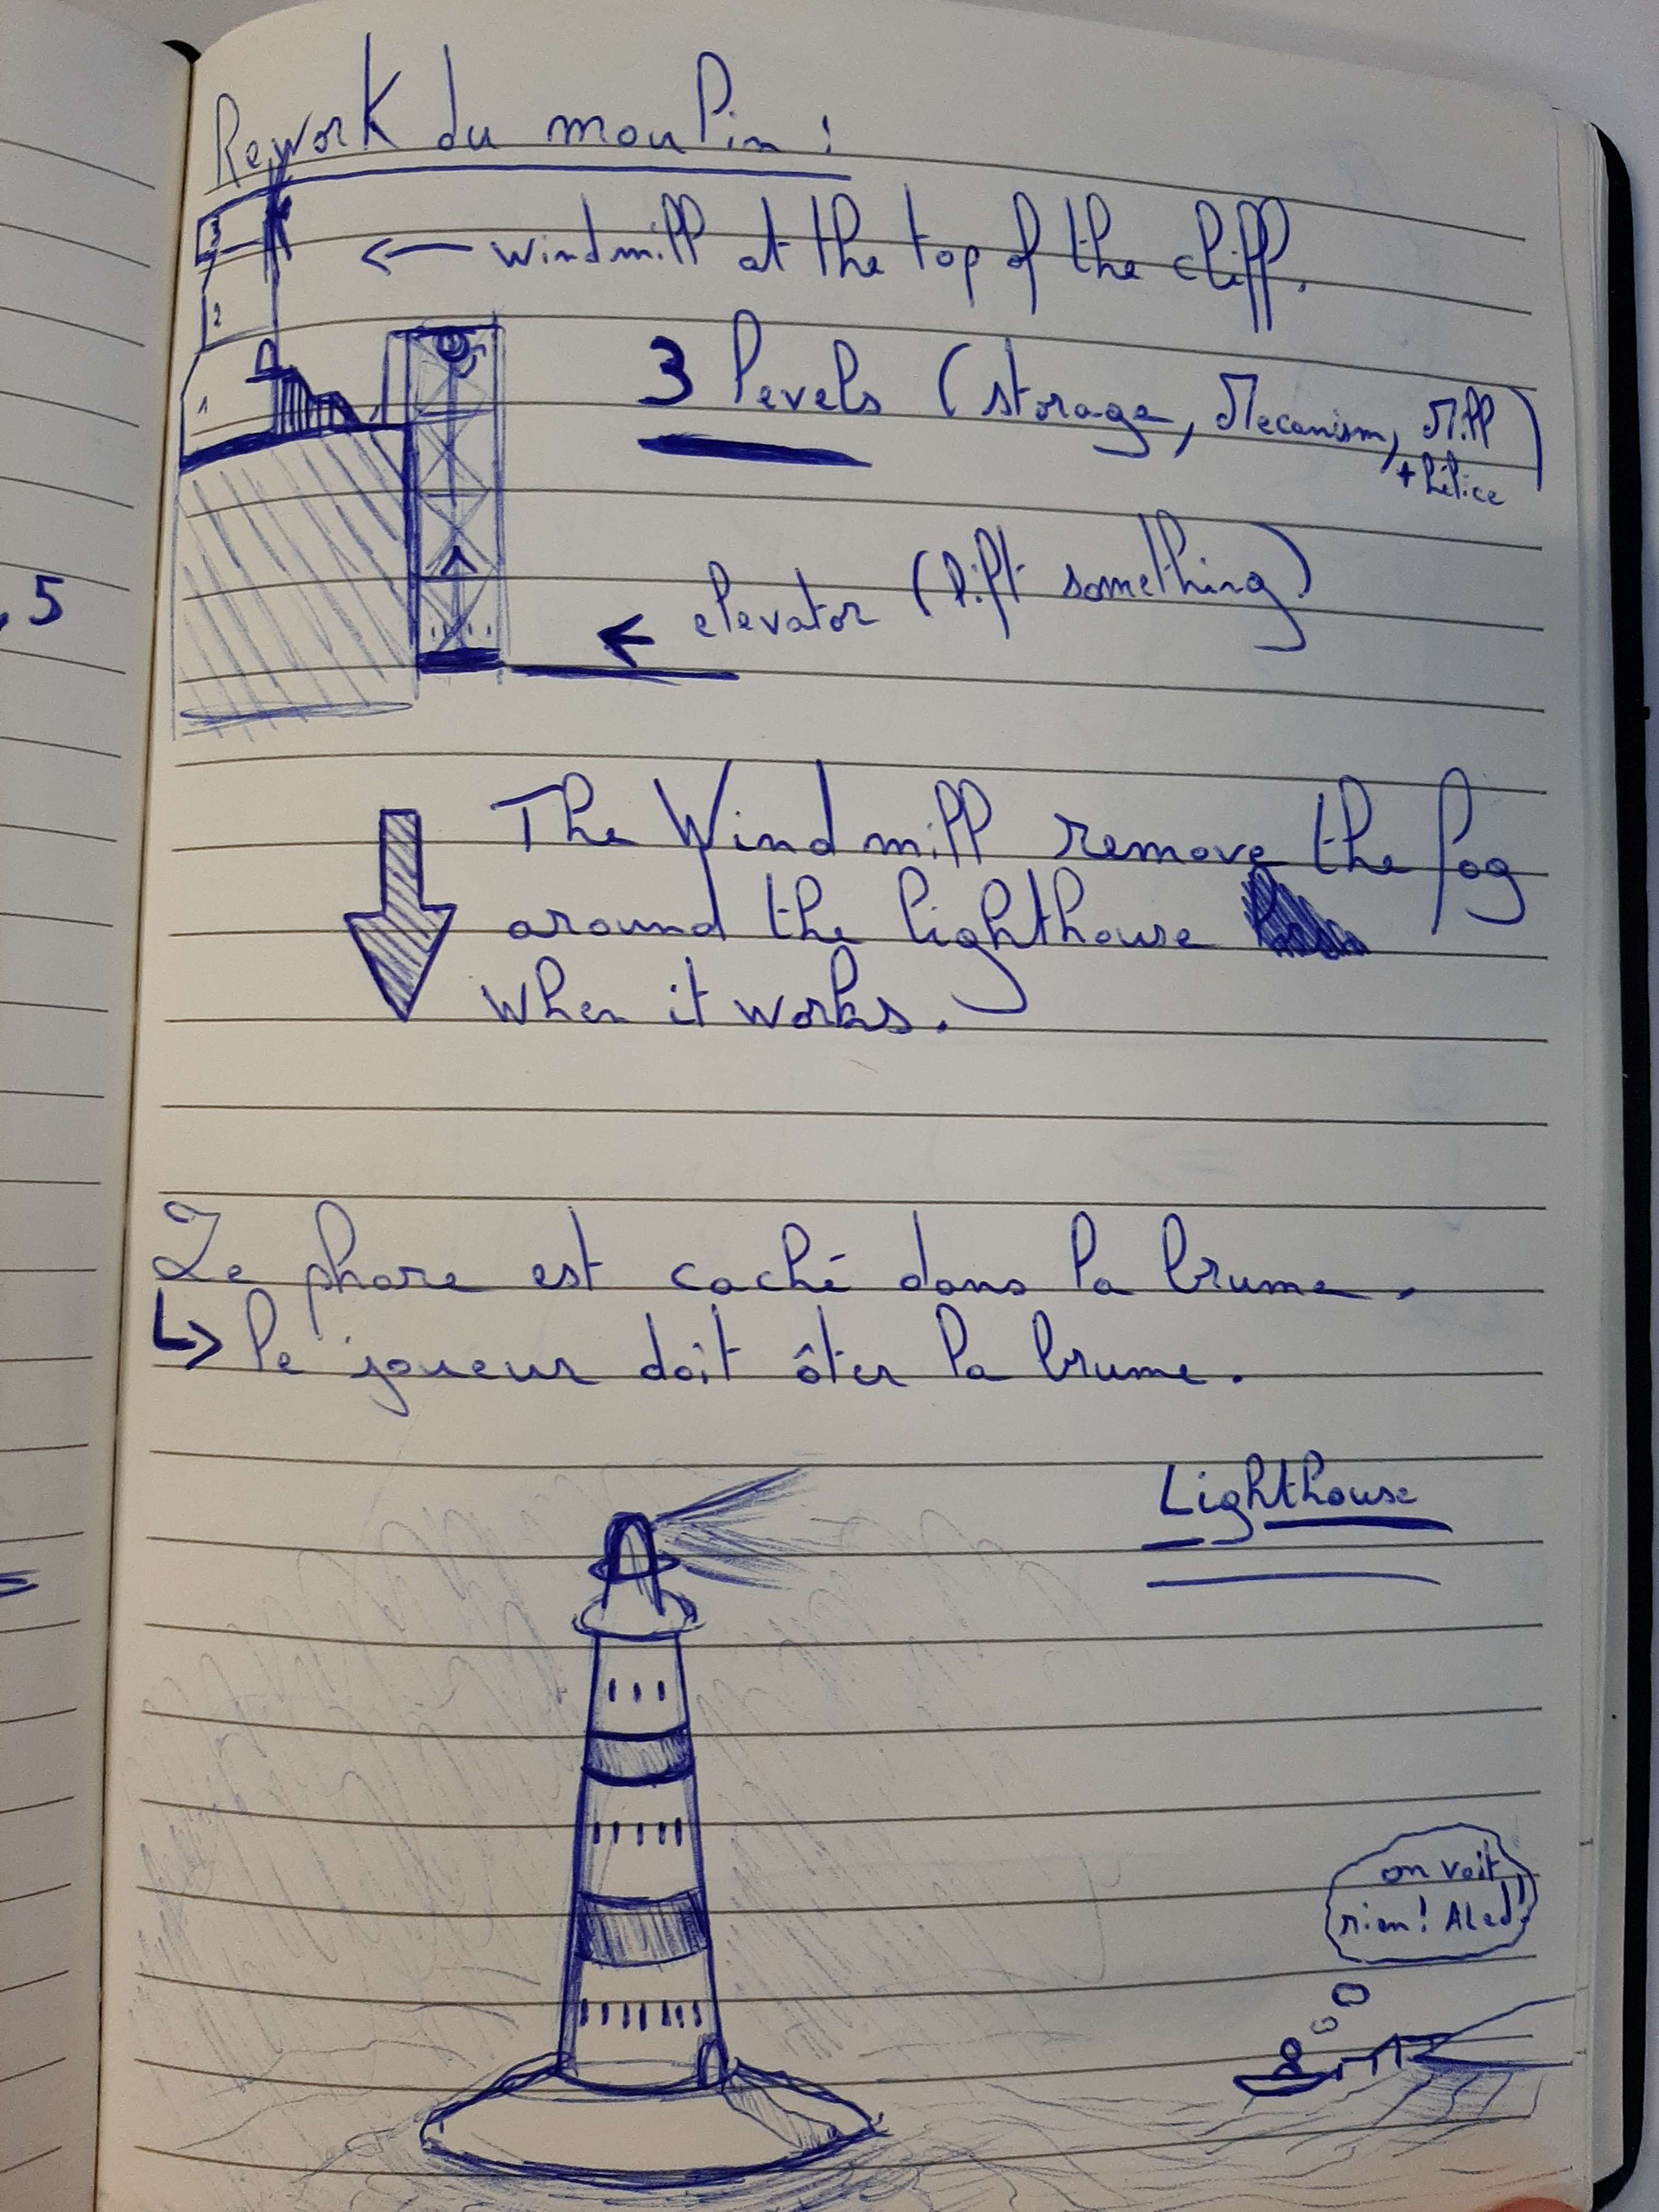 Rework du moulin :
3
2
1
← windmill at the top of the cliff.
3 levels (storage, Mecanism, Mill
+ hélice)
elevator (lift something)
← 
The Windmill remove the fog
around the lighthouse
when it works.
Le phare est caché dans la brume.
↳ le joueur doit ôter la brume.
Lighthouse
on voit
rien! Aled!
, 5